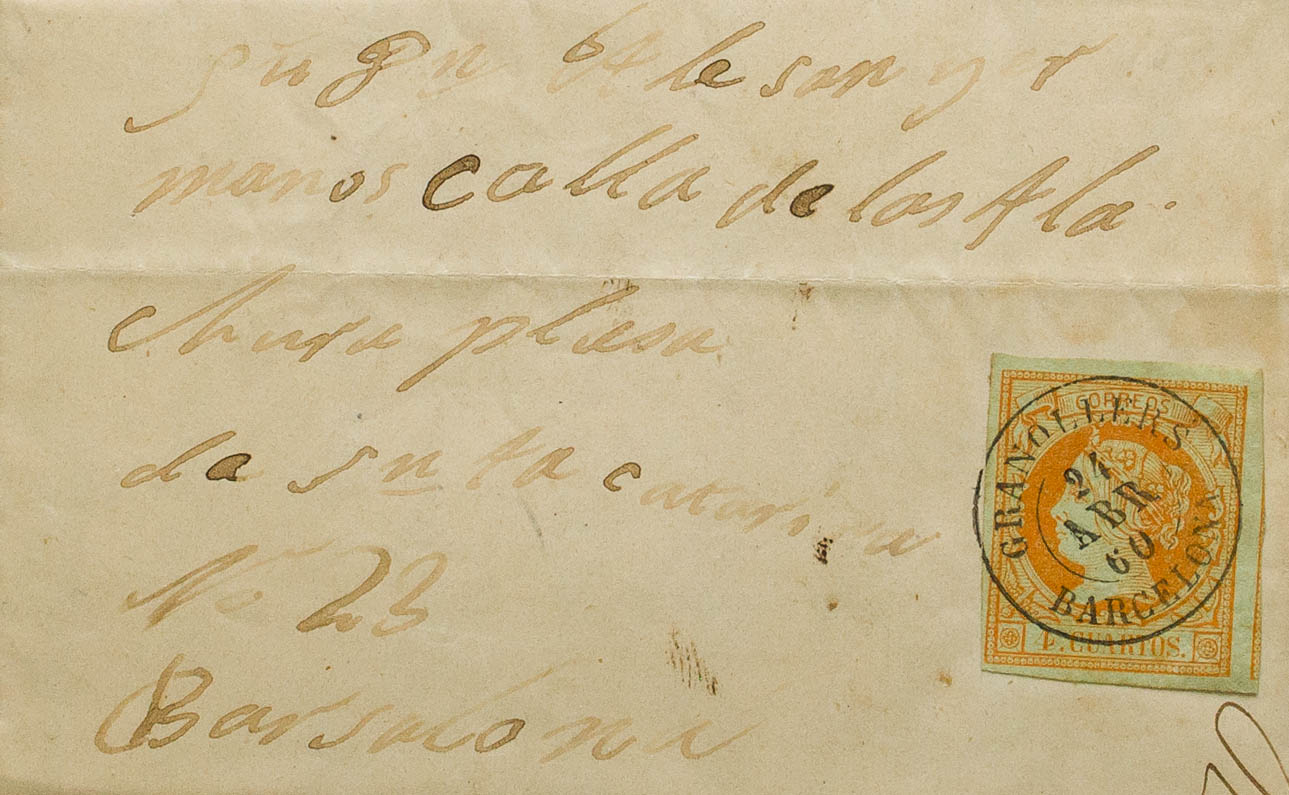 manos calla de los Ala
chura plasa
da snta catarina
No 23
Barsalona
CORREOS
GRANOLLERS
24
ABR
60
BARCELONA
4. CUARTOS.